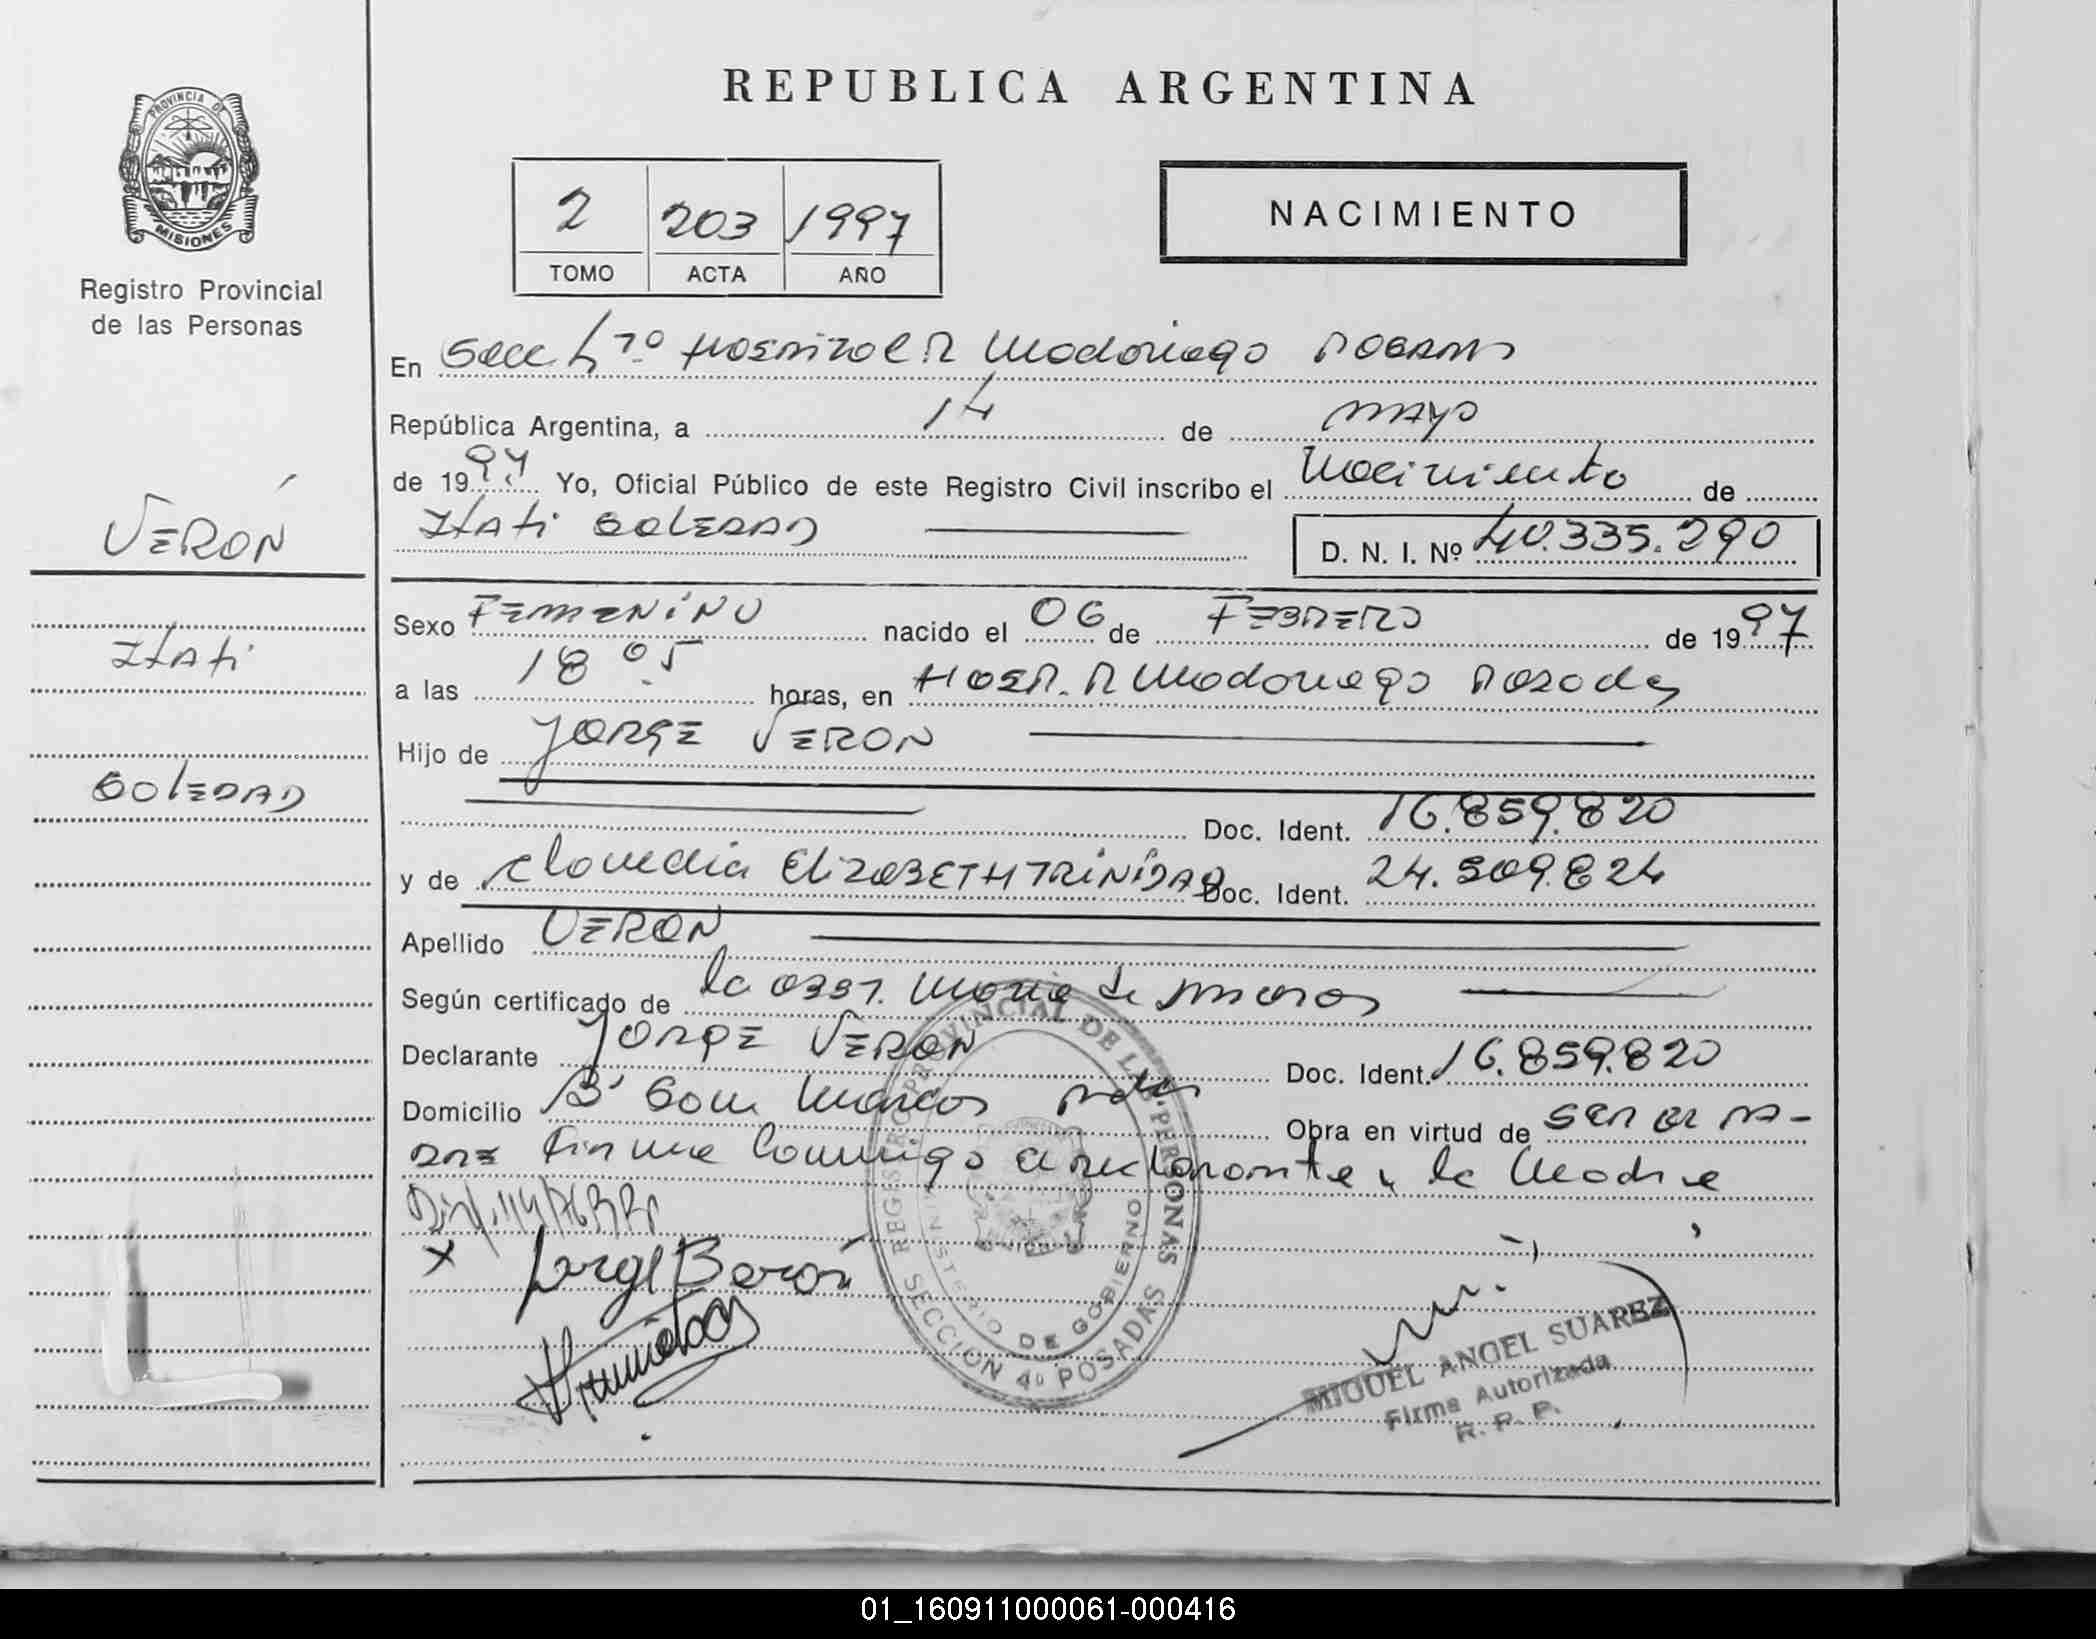 REPUBLICA ARGENTINA
PROVINCIA DE
MISIONES
Registro Provincial
de las Personas
2 203 1997
TOMO ACTA AÑO
NACIMIENTO
En Secc 4º Hospital R Madariaga Posadas
República Argentina, a 14 de mayo
de 1997 Yo, Oficial Público de este Registro Civil inscribo el Nacimiento de
Itati SOLEDAD
D. N. I. Nº 40.335.290
VERÓN
Itati
SOLEDAD
Sexo FEMENINO nacido el 06 de FEBRERO de 1997
a las 18 05 horas, en Hosp. R Madariaga Posadas
Hijo de JORGE VERON
Doc. Ident. 16.859.820
y de Claudia ElizaBETH TRINIDAD Doc. Ident. 24.509.824
Apellido VERON
Según certificado de la obst. Maria de
Declarante JORGE VERON Doc. Ident. 16.859.820
Domicilio Bº San Marcos Pdas Obra en virtud de SER EL PA-
DRE firma conmigo el declarante y la Madre
Jorge Beron
REGISTRO PROVINCIAL DE LAS PERSONAS
MINISTERIO DE GOBIERNO
SECCION 4º POSADAS
MIGUEL ANGEL SUAREZ
Firma Autorizada
R. P. P.
01_160911000061-000416